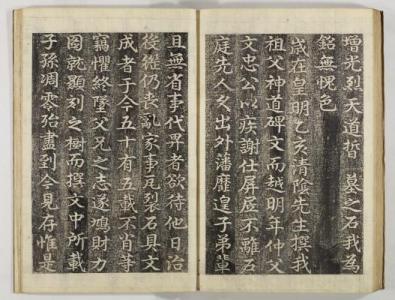 增光烈天道晢 墓之石我爲
銘無愧色
歲在皇明乙亥清陰先生撰我
祖父神道碑文而越明年仲父
文忠公以疾謝仕屛居不離
庭先人久出外藩靡遑子弟輩
且無省事代畀者欲待他日治
仍喪亂家事瓦裂石具文
成者于今五十有五載不肖等
竊懼終墜父兄之志遂鳩財力
圖就顯刻之樹而撰文中所載
子孫凋零殆盡到今見存惟是